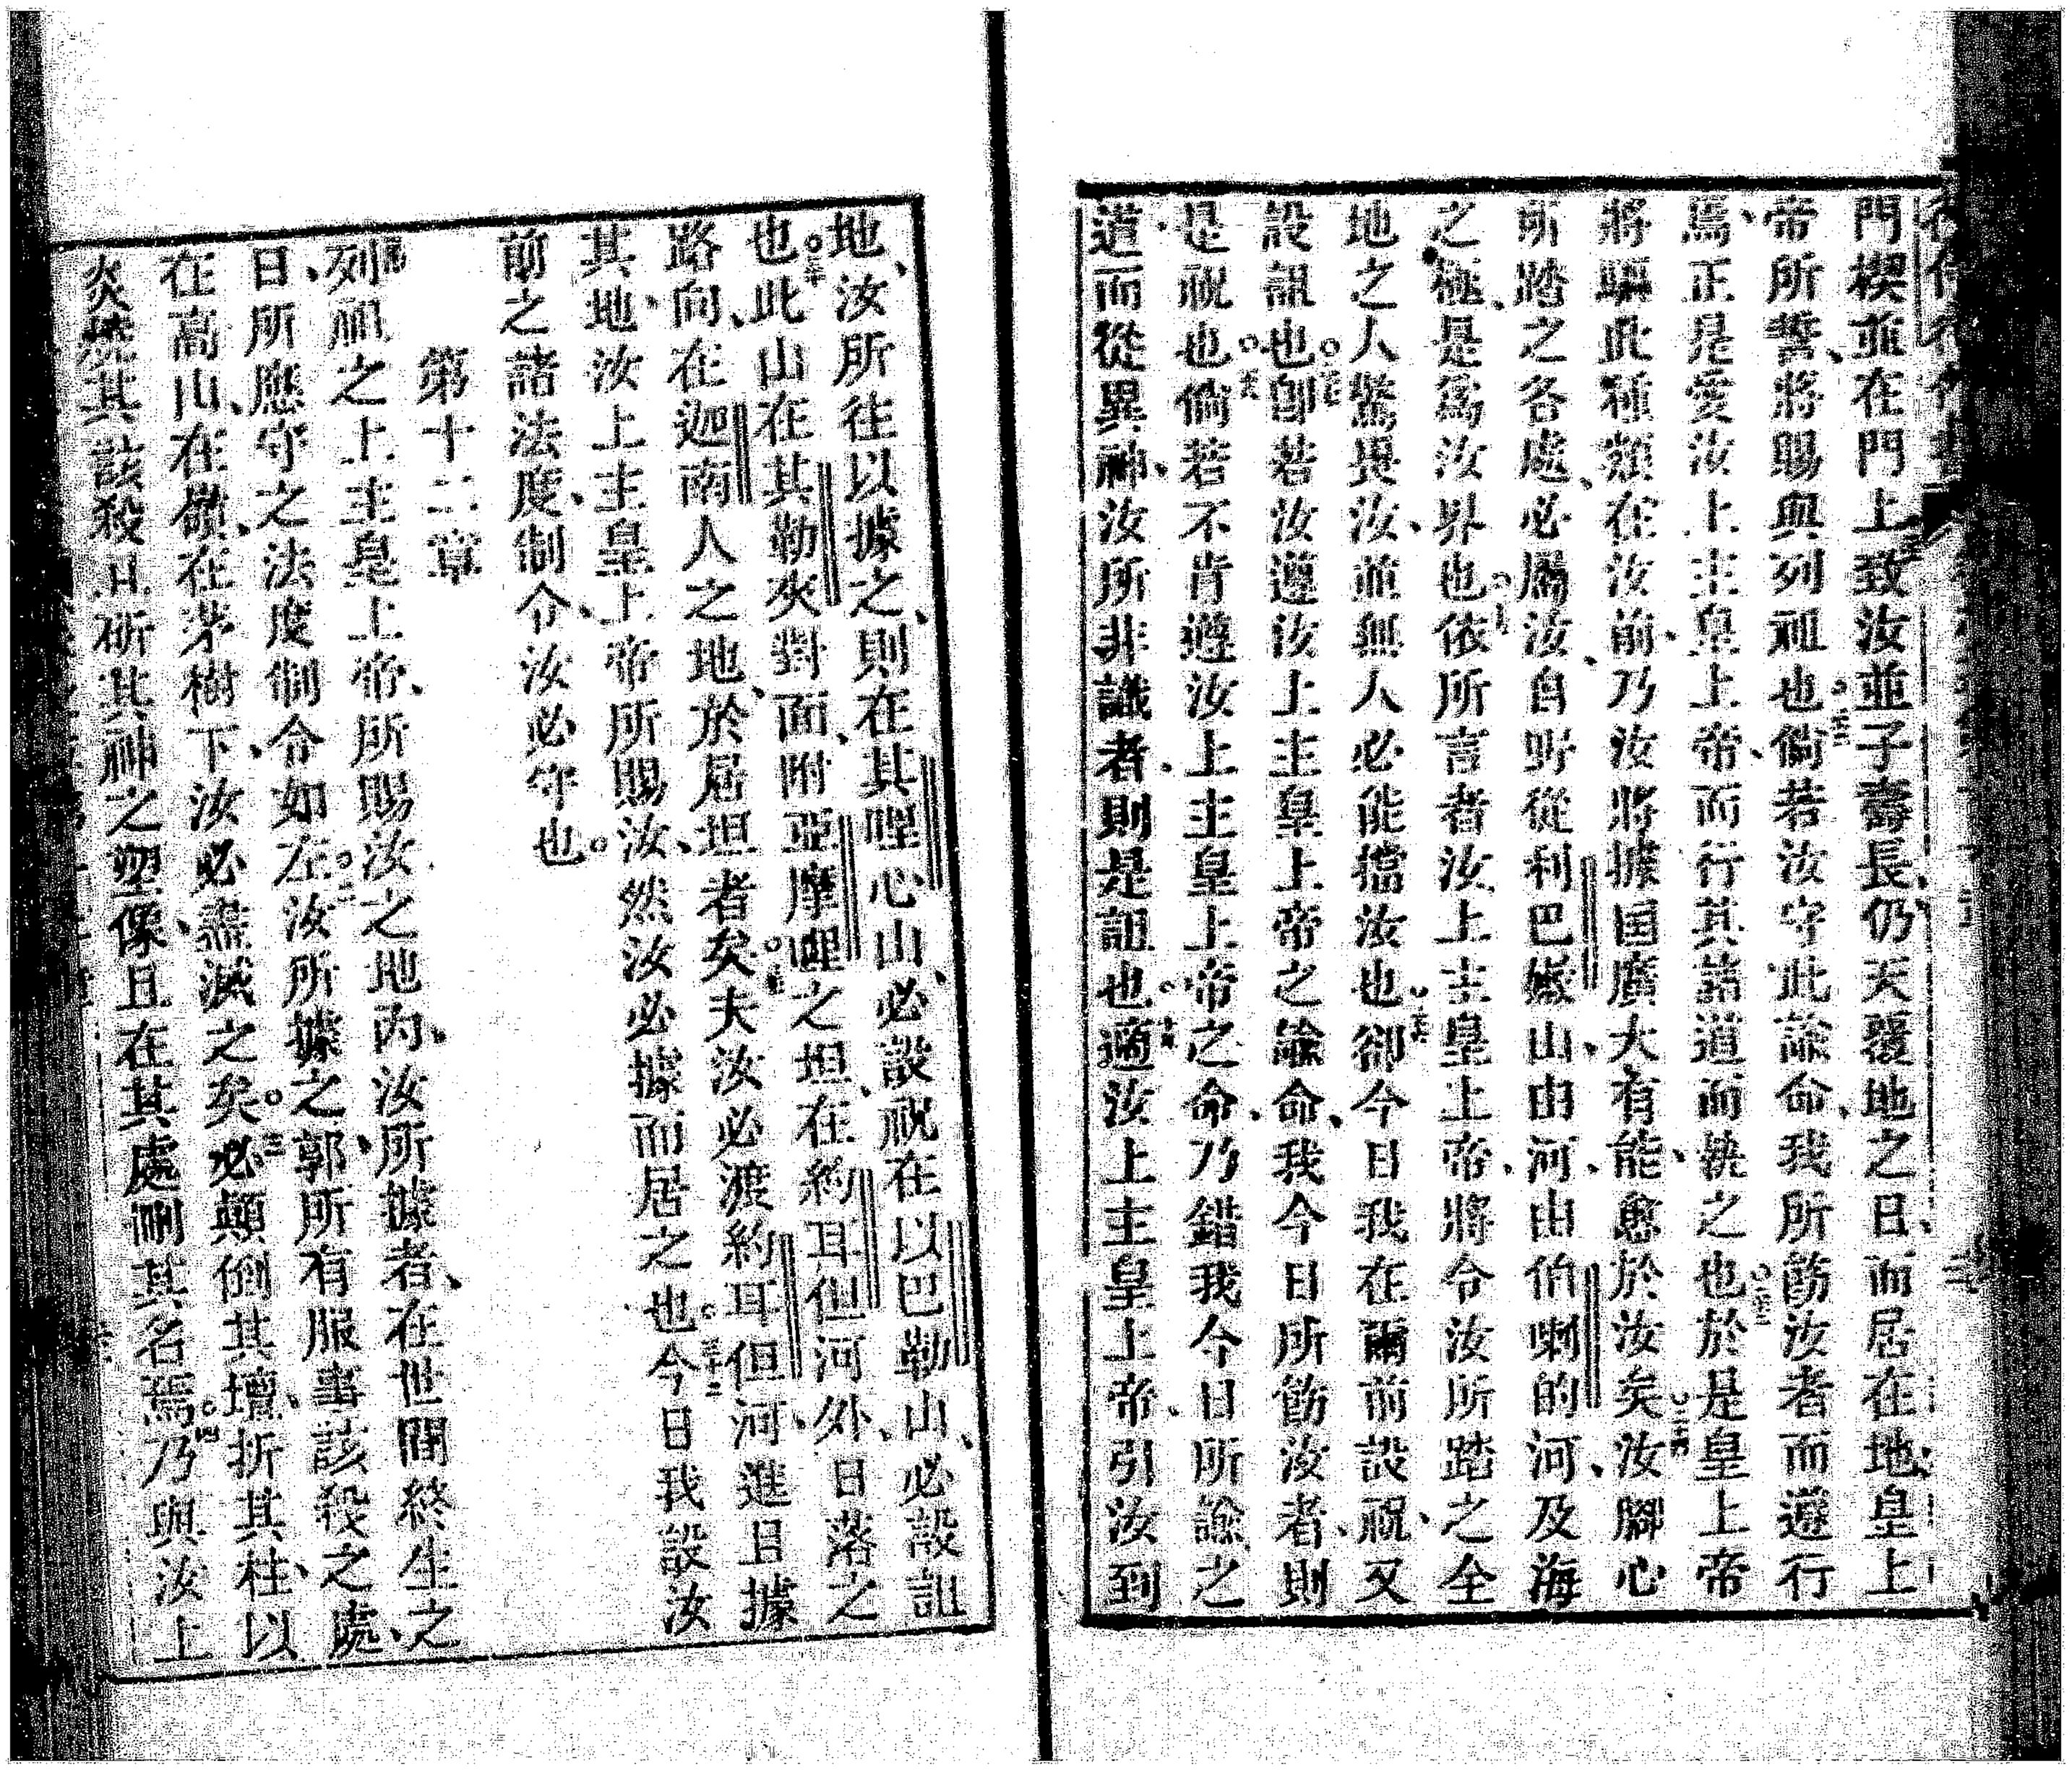 門楔並在門上致汝並子壽長、仍天覆地之日、而居在地、皇上
帝所誓、將賜與列祖也。倘若汝守此諭命、我所飭汝者而遵行
焉、正是愛汝上主皇上帝、而行其諸道而繞之也。於是皇上帝
將驅此種類在汝前、乃汝將據国廣大有能、愈於汝矣。汝腳心
所踏之各處、必屬汝、自野從利巴嫩山、由河、由伯喇的河、及海
之極、是為汝界也。依所言者、汝上主皇上帝、將令汝所踏之全
地之人驚畏汝、並無人必能擋汝也。卻今日我在爾前設祝、又
設詛也。卽若汝遵汝上主皇上帝之諭命、我今日所飭汝者、則
是祝也。倘若不肯遵汝上主皇上帝之命、乃錯我今日所諭之
道而從異神、汝所非識者、則是詛也。適汝上主皇上帝、引汝到
地、汝所往以據之、則在其哩心山、必設祝、在以巴勒山、必設詛
也。此山在其勒夾對面、附亞摩哩之坦、在約耳但河外、日落之
路向、在迦南人之地、於居坦者矣。夫汝必渡約耳但河、進且據
其地、汝上主皇上帝所賜汝、然汝必據而居之也。今日我設汝
前之諸法度、制令、汝必守也。
第十二章
列祖之上主皇上帝、所賜汝之地內、汝所據者、在世間終生之
日、所應守之法度制令如左。汝所據之郭、所有服事該殺之處、
在高山、在嶺、在茅樹下、汝必盡滅之矣。必顛倒其壇、折其柱、以
炎焚其該殺日、斫其神之塑像、且在其處刪其名焉。乃與汝上